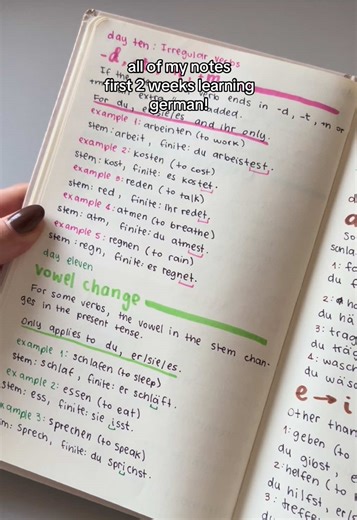 all of my notes
first 2 weeks learning
german!
day ten: Irregular verbs
-d,
If the
ends in -d, -t, -n or
added.
For du, er/sie/es and ihr only.
example 1: arbeinten (to work)
stem: arbeit, finite: du arbeitest.
example 2: kosten (to cost)
stem: kost, finite: es kostet.
example 3: reden (to talk)
stem: red, finite: Ihr redet.
example 4: atmen (to breathe)
stem: atm, finite: du atmest.
example 5: regnen (to rain)
stem: regn, finite: es regnet.
day eleven
vowel change
For some verbs, the vowel in the stem chan-
ges in the present tense.
Only applies to du, er/sie/es.
example 1: schlafen (to sleep)
stem: schlaf, finite: er schläft.
example 2: essen (to eat)
stem: ess, finite: sie isst.
example 3: sprechen (to speak)
Sprech, finite: du sprichst.
So
du f
2:
du
3: trag
du trä
4: wasch
du wäs
e → i
Other than
1: geben (to
du gibst, e
2: helfen (to
du hilfst, er/s
3: treffe
du